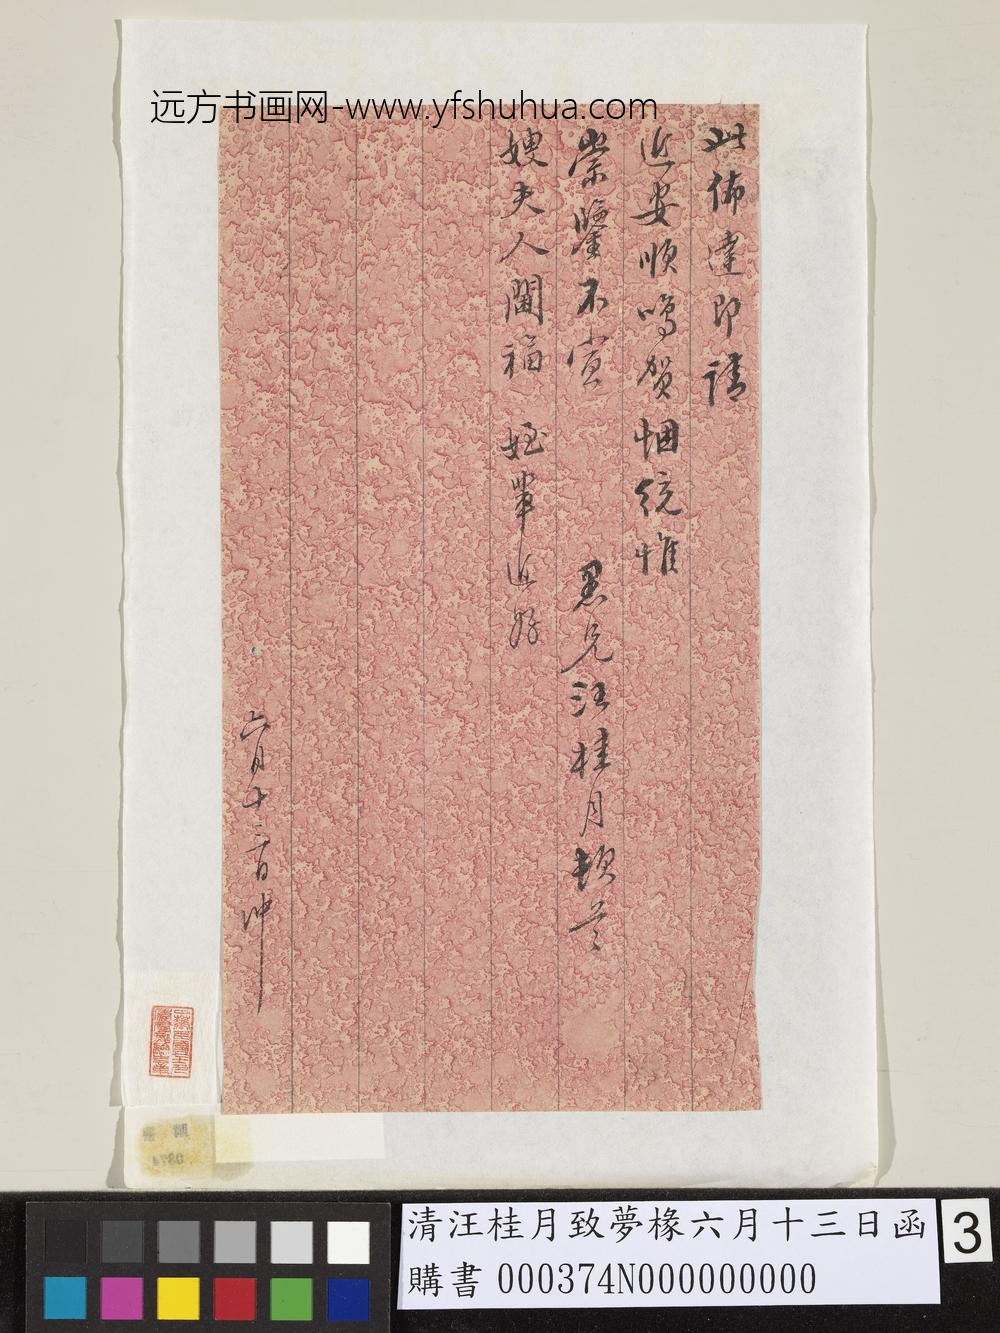 远方书画网-www.yfshuhua.com
此佈達即請
近安順鳴賀悃統惟
崇鑒不宣 愚兄汪桂月頓首
嫂夫人閫福 姪輩近好
六月十三日沖
清汪桂月致夢椽六月十三日函
購書 000374N000000000
3